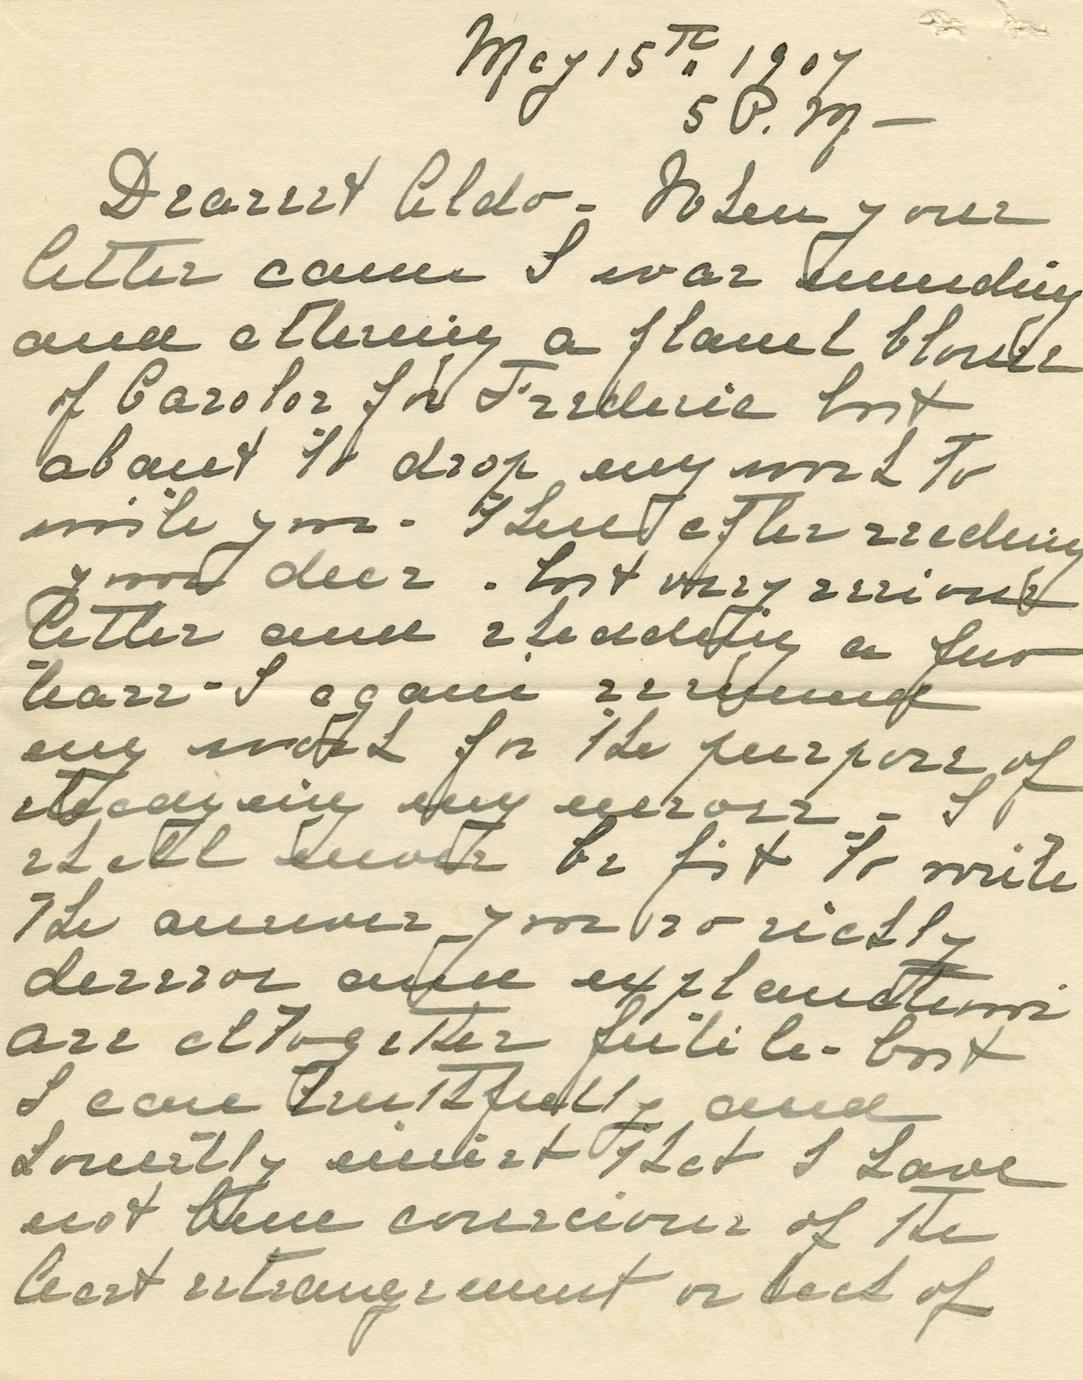 May 15th, 1907
5 P. M —
Dearest Aldo - When your
letter came I was mending
and altering a flanel blouse
of Carolos for Frederic but
about to drop my work to
write you. Then after reading
your dear . but very serious
letter and shedding a few
tears - I again resumed
my work for the purpose of
steadying my nerves - I
shall never be fit to write
the answer you so richly
deserve and explanations
are altogether futile - but
I can truthfully and
honestly insist that I have
not been conscious of the
least estrangement or lack of